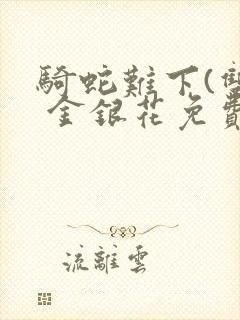 騎蛇難下(雙
金銀花免費
流離雲